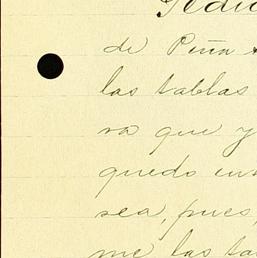 de Piña
las tablas
va que y
quedo en
sea, pues,
me las ta